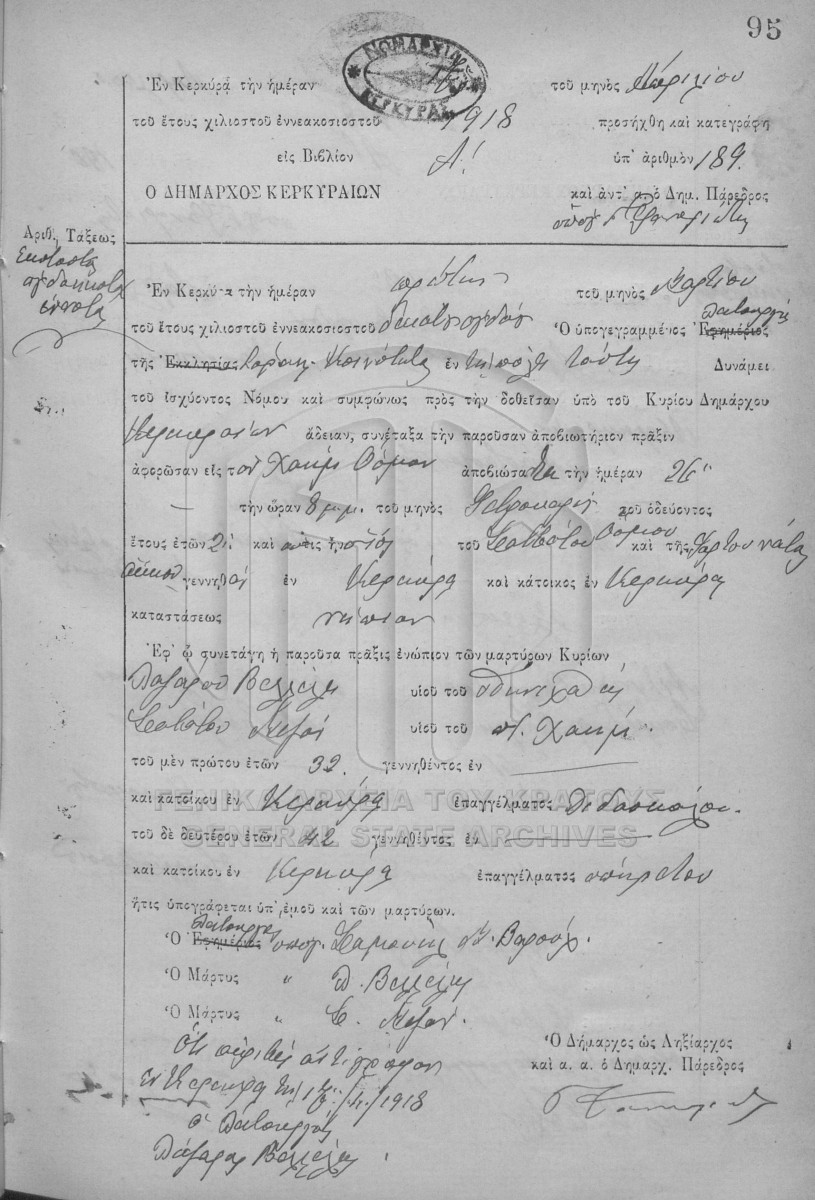 95
ΝΟΜΑΡΧΙΑ
ΚΕΡΚΥΡΑΣ
Ἐν Κερκύρᾳ τὴν ἡμέραν τοῦ μηνὸς Ἀπριλίου
τοῦ ἔτους χιλιοστοῦ ἐννεακοσιοστοῦ 1918 προσήχθη καὶ κατεγράφη
εἰς Βιβλίον Α! ὑπ' ἀριθμὸν 189.
Ο ΔΗΜΑΡΧΟΣ ΚΕΡΚΥΡΑΙΩΝ καὶ ἀντ' α. ὁ Δημ. Πάρεδρος
Ἀριθ. Τάξεως
Ἑκατοστὴ
ὀγδοηκοστὴ
ἐννάτη
Ἐν Κερκύρᾳ τὴν ἡμέραν πρώτην τοῦ μηνὸς Μαρτίου
τοῦ ἔτους χιλιοστοῦ ἐννεακοσιοστοῦ δεκάτου ὀγδόου Ὁ ὑπογεγραμμένος Ἐφημέριος λειτουργὸς
τῆς Ἐκκλησίας Ἰσραηλ. Κοινότητος ἐν τῇ πόλει ταύτῃ Δυνάμει
τοῦ ἰσχύοντος Νόμου καὶ συμφώνως πρὸς τὴν δοθεῖσαν ὑπὸ τοῦ Κυρίου Δημάρχου
Κερκυραίων ἄδειαν, συνέταξα τὴν παροῦσαν ἀποβιωτήριον πρᾶξιν
ἀφορῶσαν εἰς τὸν Χαΐμ Ὄσμον ἀποβιώσαντα τὴν ἡμέραν 26
τὴν ὥραν 8 μ.μ. τοῦ μηνὸς Φεβρουαρίου τοῦ ὁδεύοντος
ἔτους ἐτῶν 2 καὶ τοῦ Σαββάτου Ὄσμου καὶ τῆς Φορτουνάτας
γεννηθεὶς ἐν Κερκύρᾳ καὶ κάτοικος ἐν Κερκύρᾳ
καταστάσεως νήπιον
Ἐφ' ᾧ συνετάγη ἡ παροῦσα πρᾶξις ἐνώπιον τῶν μαρτύρων Κυρίων
Λαζάρου Βελλέλη υἱοῦ τοῦ
Σαββάτου Νεγρὶν υἱοῦ τοῦ π. Χαΐμ.
τοῦ μὲν πρώτου ἐτῶν 32. γεννηθέντος ἐν
καὶ κατοίκου ἐν Κερκύρᾳ ἐπαγγέλματος Διδασκάλου.
τοῦ δὲ δευτέρου ἐτῶν 42 γεννηθέντος ἐν
καὶ κατοίκου ἐν Κερκύρᾳ ἐπαγγέλματος ὑπηρέτου
ἥτις ὑπογράφεται ὑπ' ἐμοῦ καὶ τῶν μαρτύρων.
Ὁ Ἐφημέριος λειτουργὸς ὑπογ. Σαμουὴλ Ν. Βαροὺχ.
Ὁ Μάρτυς " Λ. Βελλέλης
Ὁ Μάρτυς " Σ. Νεγρίν.
Ὅτι ἀκριβὲς ἀντίγραφον
ἐν Κερκύρᾳ τῇ /4/1918
ὁ λειτουργὸς
Λάζαρος Βελλέλης
Ὁ Δήμαρχος ὡς Ληξίαρχος
καὶ α. α. ὁ Δημαρχ. Πάρεδρος
ΓΕΝΙΚΑ ΑΡΧΕΙΑ ΤΟΥ ΚΡΑΤΟΥΣ
GENERAL STATE ARCHIVES